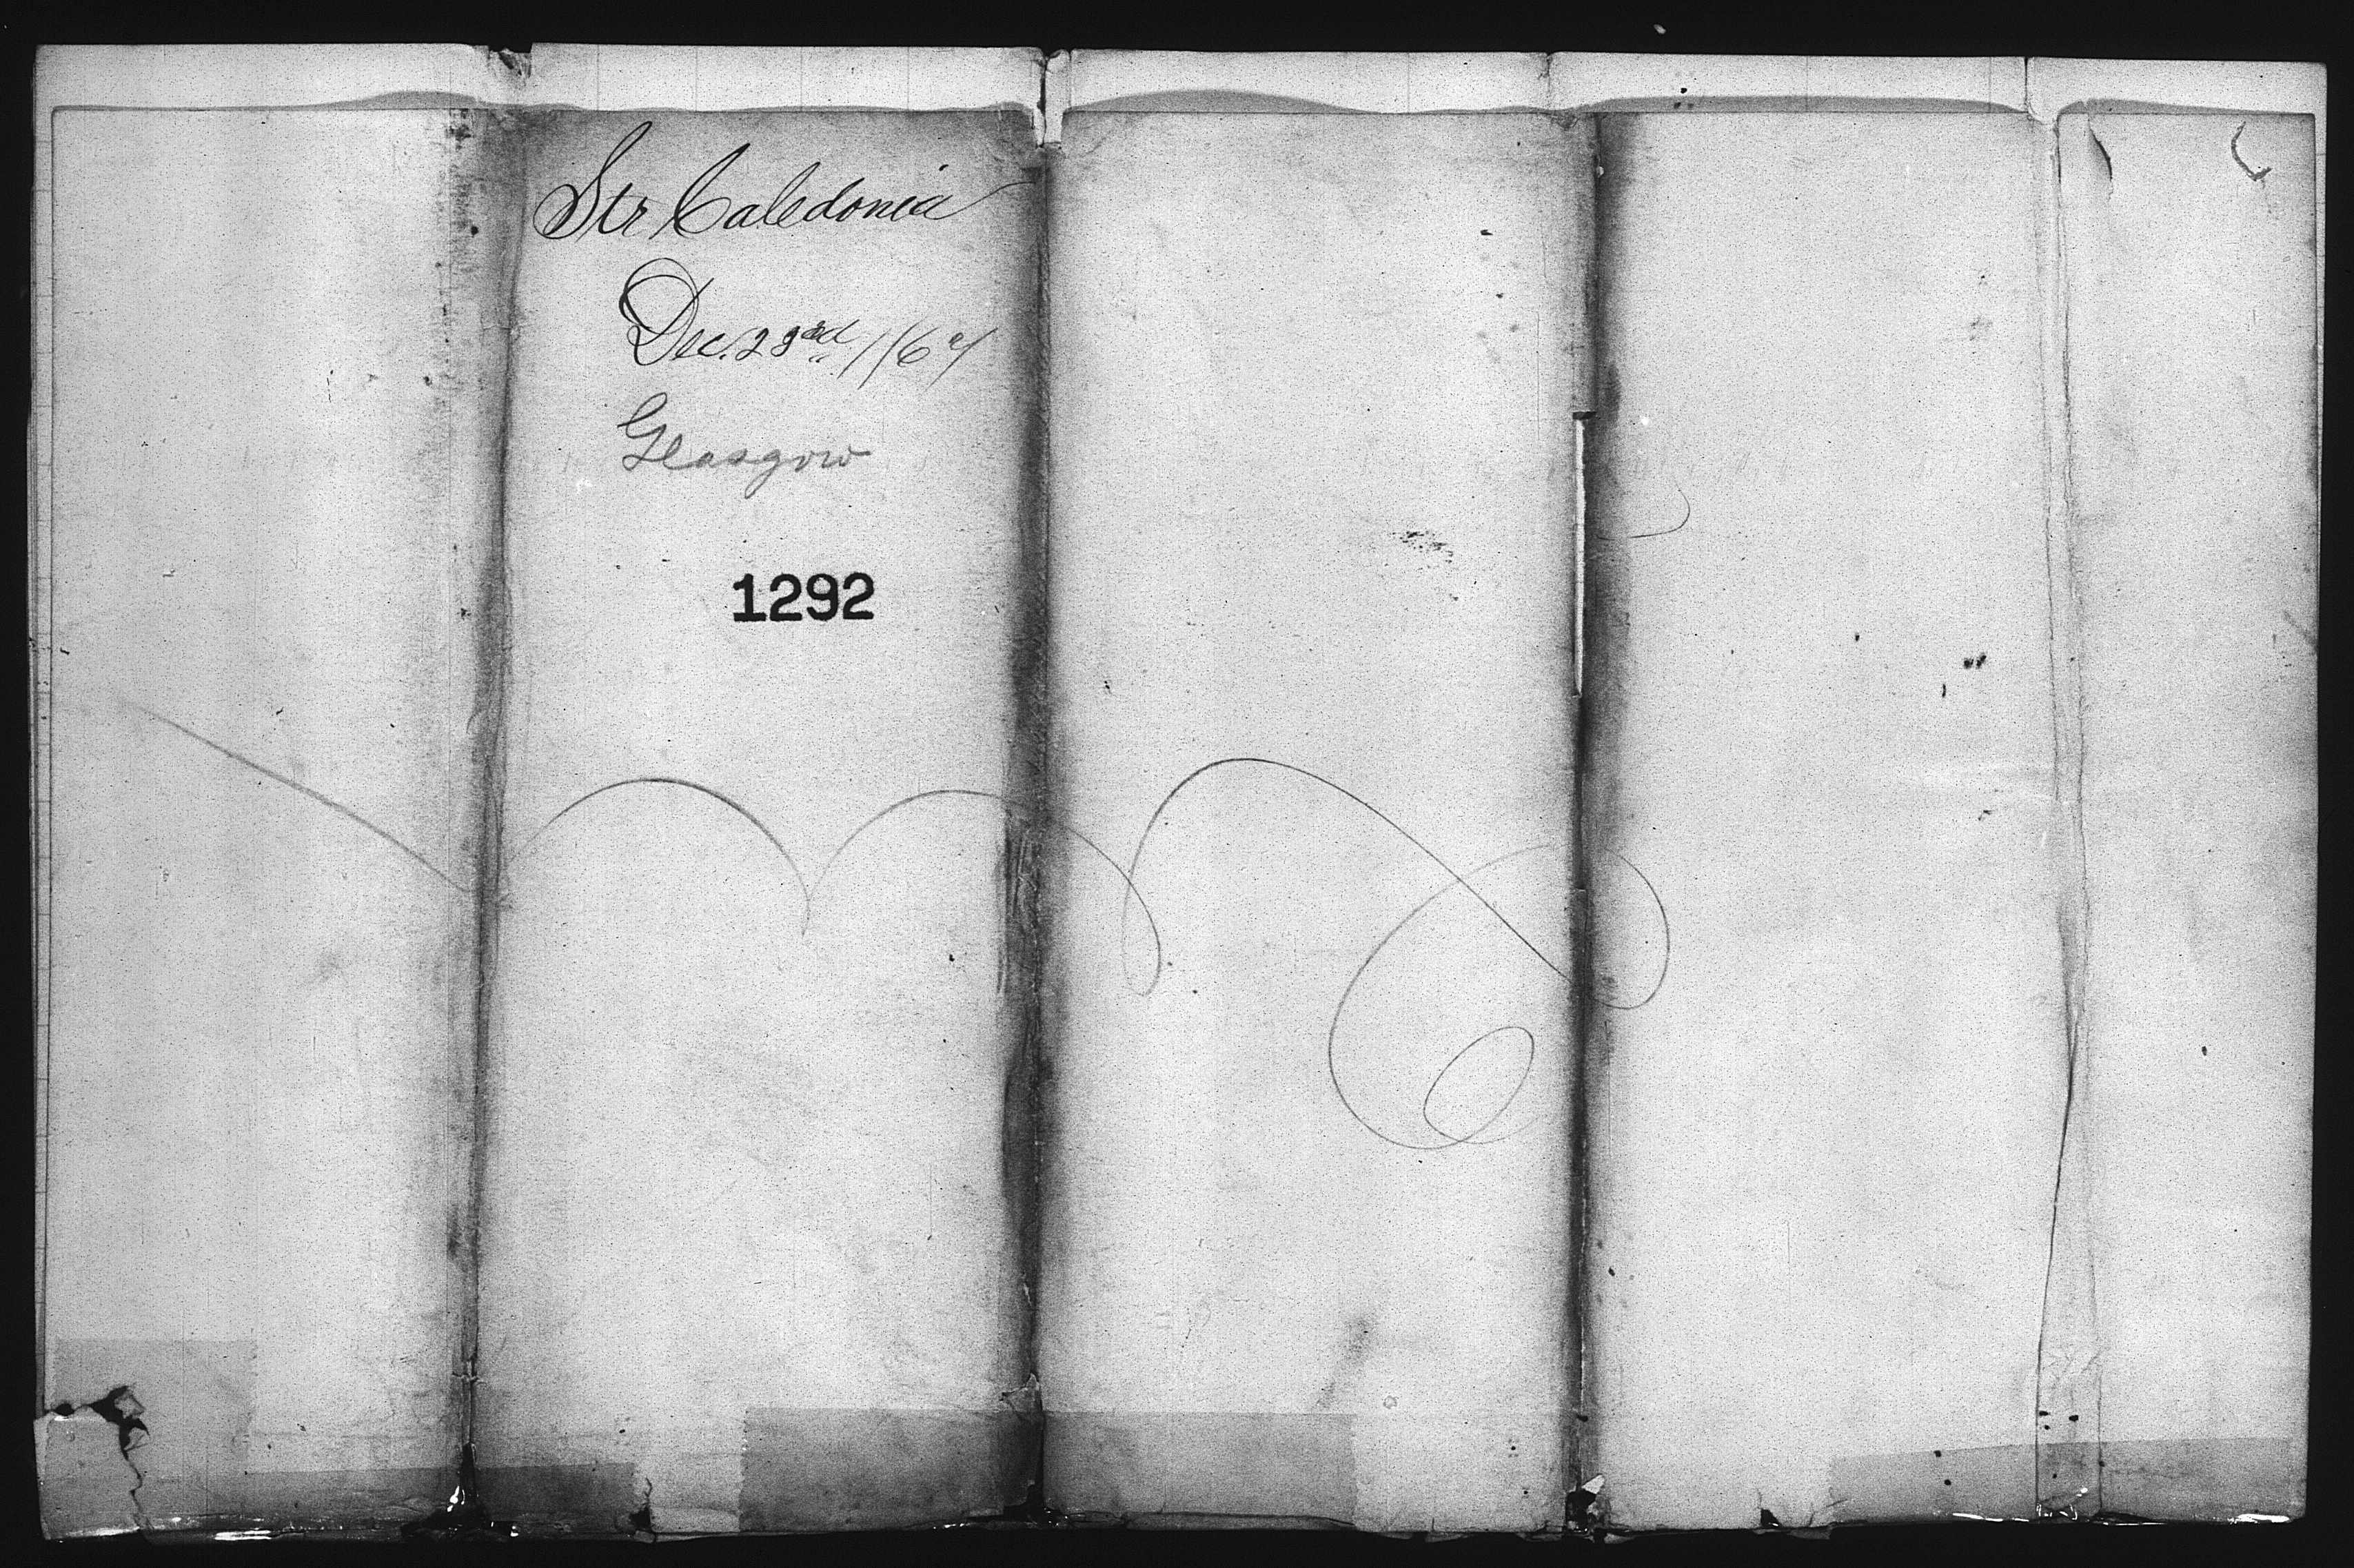 Str Caledonia
Dec. 23rd //67
Glasgow
1292